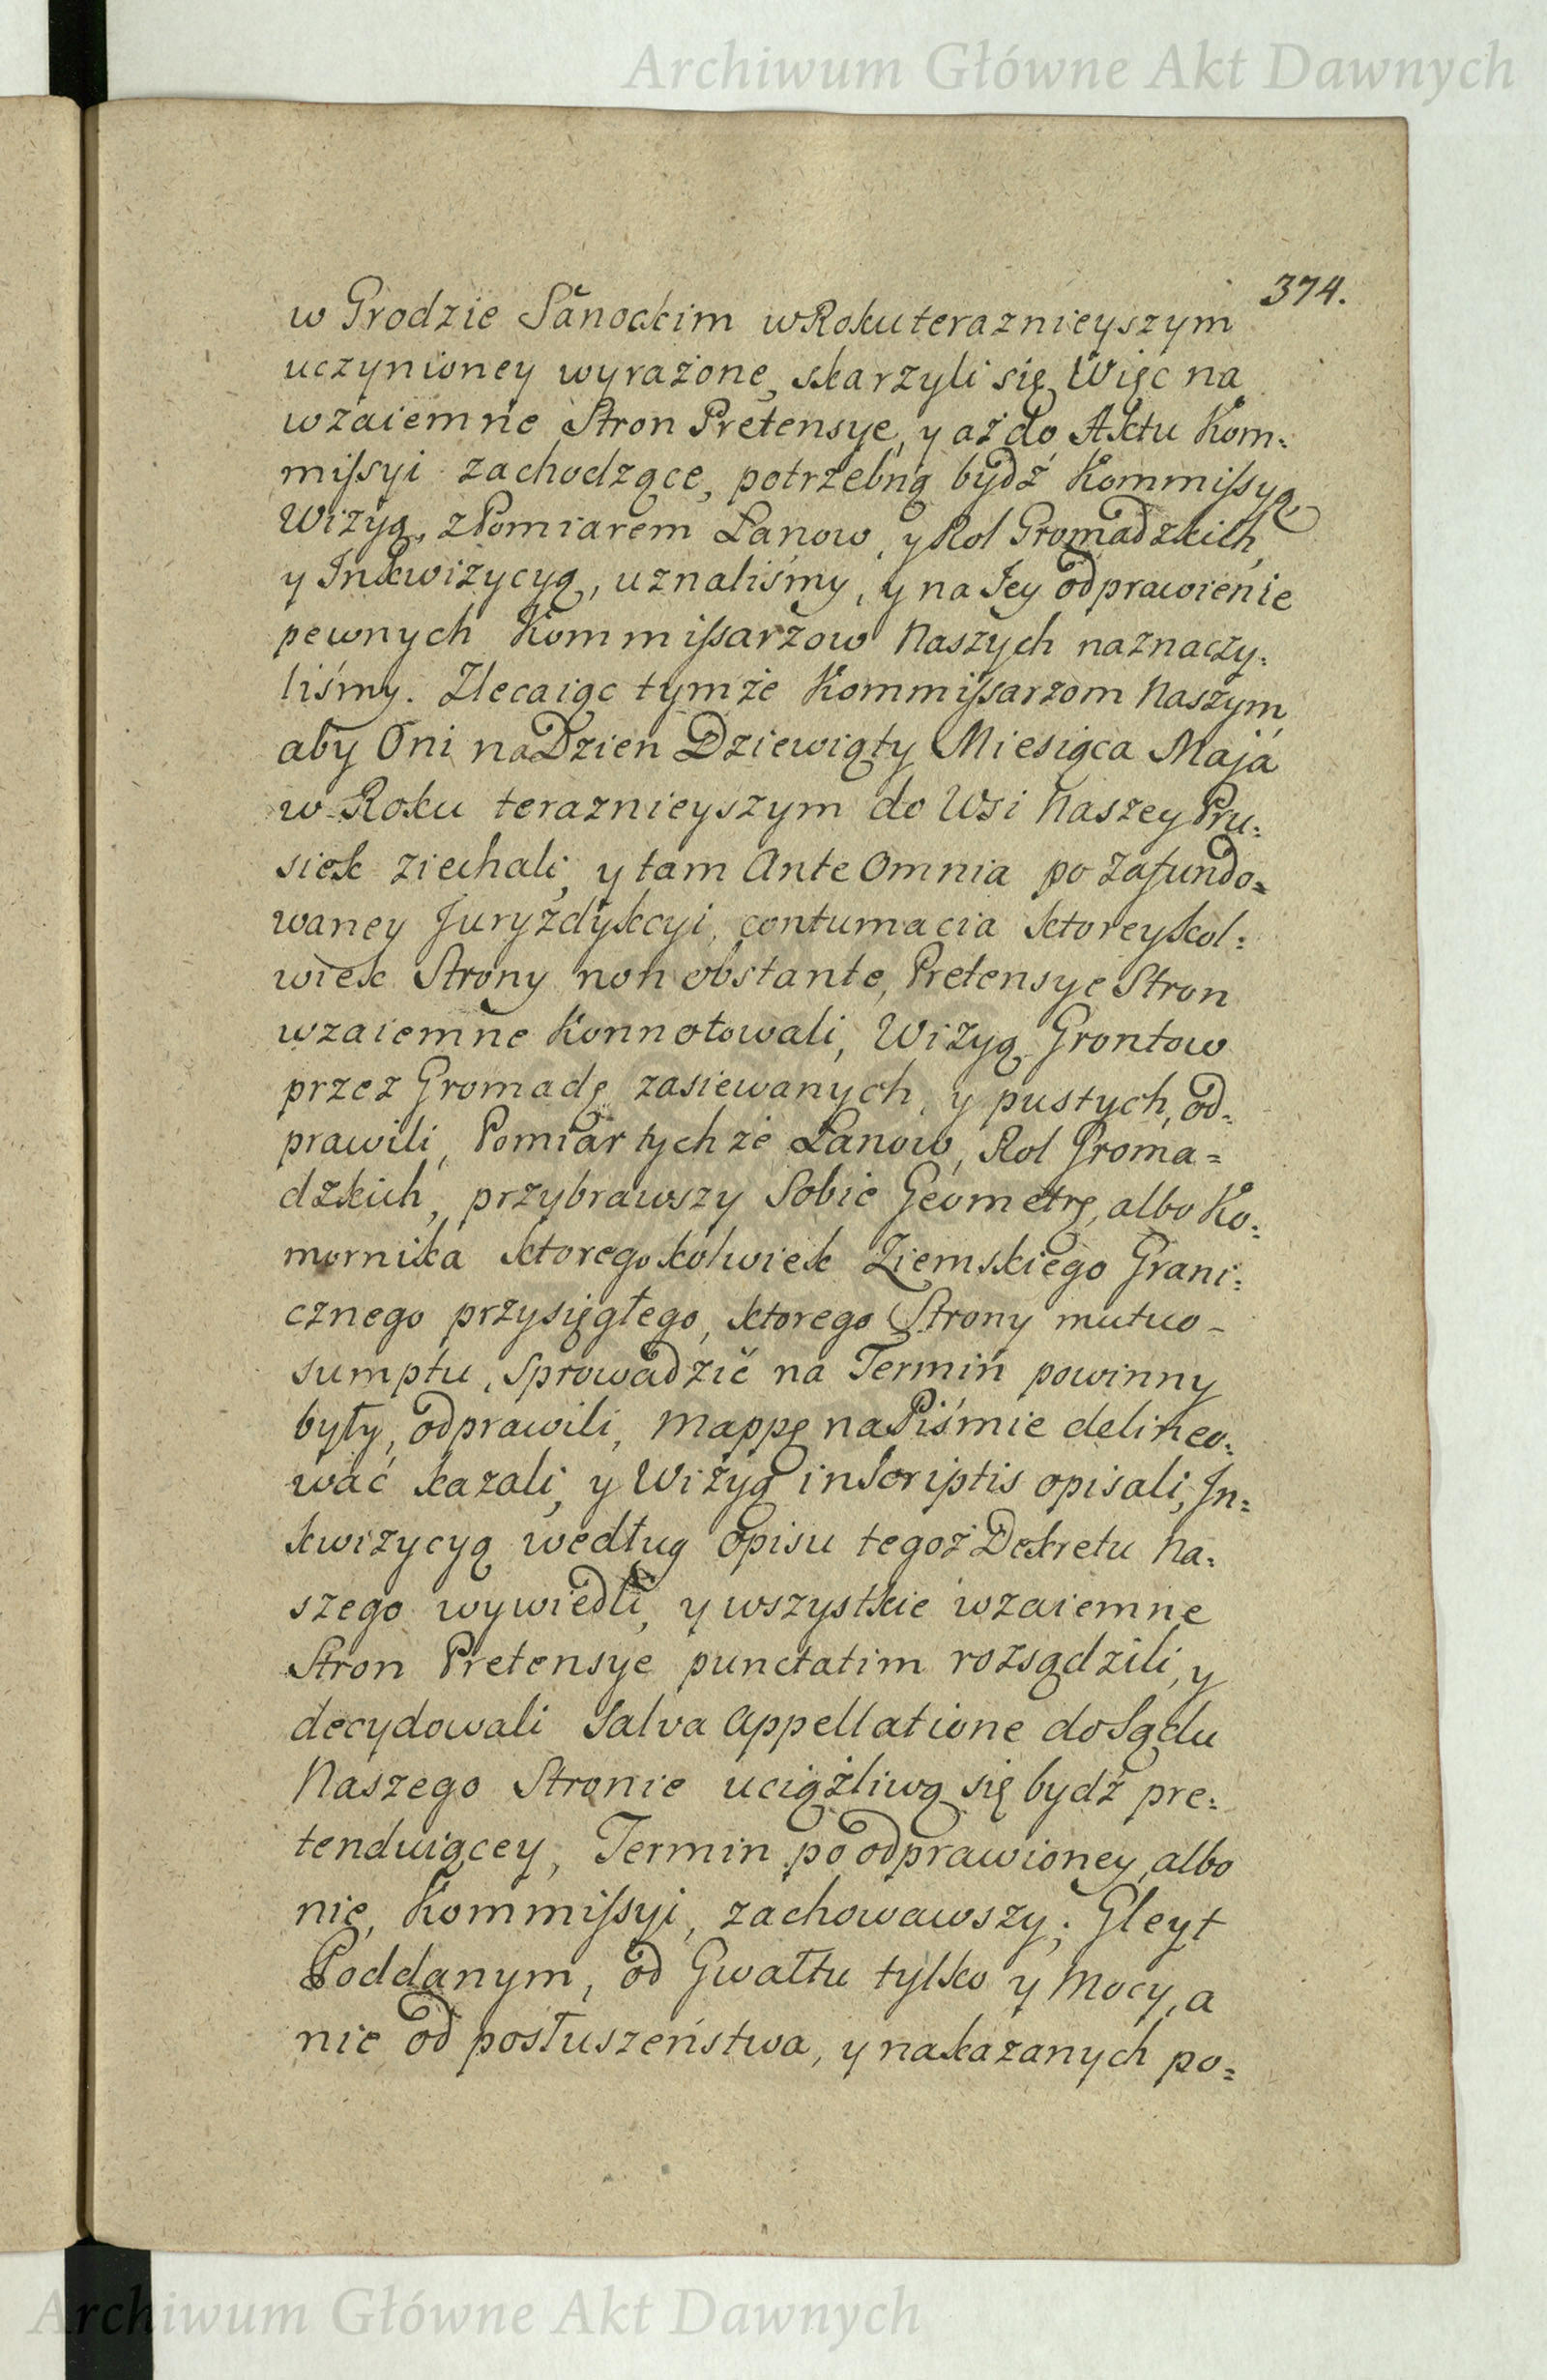 Archiwum Główne Akt Dawnych
374.
w Grodzie Sanockim w Roku teraznieyszym
uczynioney wyrażone, skarzyli się, Więc na
wzaiemne Stron Pretensye, y aż do Aktu Kom:
mißyi zachodzące, potrzebną bydź Kommißyą,
Wizyą, z Pomiarem Lanow, y Rol Gromadzkich,
y Inkwizycyą, uznaliśmy, y na Jey odprawienie
pewnych Kommißarzow Naszych naznaczy:
liśmy. Zlecaiąc tymże Kommißarzom Naszym
aby Oni na Dzien Dziewiąty Miesiąca Maja
w Roku teraznieyszym do Wsi Naszey Pru:
siek ziechali, y tam Ante Omnia po zafundo=
waney Juryzdykcyi, contumacia ktoreykol:
wiek Strony non obstante, Pretensye Stron
wzaiemne Konnotowali, Wizyą Grontow
przez Gromadę zasiewanych, y pustych, od:
prawili, Pomiar tychże Lanow, Rol Groma=
dzkich, przybrawszy Sobie Geometrę, albo Ko:
mornika ktoregokolwiek Ziemskiego Grani:
cznego przysięgłego, ktorego Strony mutuo-
sumptu, sprowadzić na Termin powinny
były, odprawili, Mappę na Piśmie delineo:
wać kazali, y Wizyą in Scriptis opisali, In=
kwizycyą według Opisu tegoż Dekretu Na:
szego wywiedli, y wszystkie wzaiemne
Stron Pretensye punctatim rozsądzili, y
decydowali Salva Appellatione do Sądu
Naszego Stronie uciążliwą się bydź pre:
tenduiącey, Termin po odprawioney, albo
nie, Kommißyi, zachowawszy; Gleyt
Poddanym, od Gwałtu tylko y Mocy, a
nie od posłuszeństwa, y nakazanych po=
Archiwum Główne Akt Dawnych